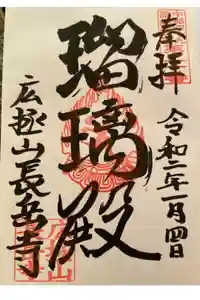 奉拝
令和二年一月四日
瑠璃殿
広極山長岳寺